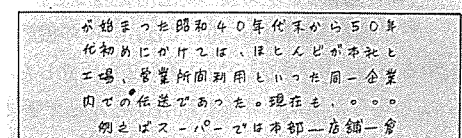 が始まった昭和40年代末から50年
代初めにかけては、ほとんどが本社と
工場、営業所間利用といった同一企業
内での伝送であった。現在も、。。。
例えばスーパーでは本部—店舗—倉